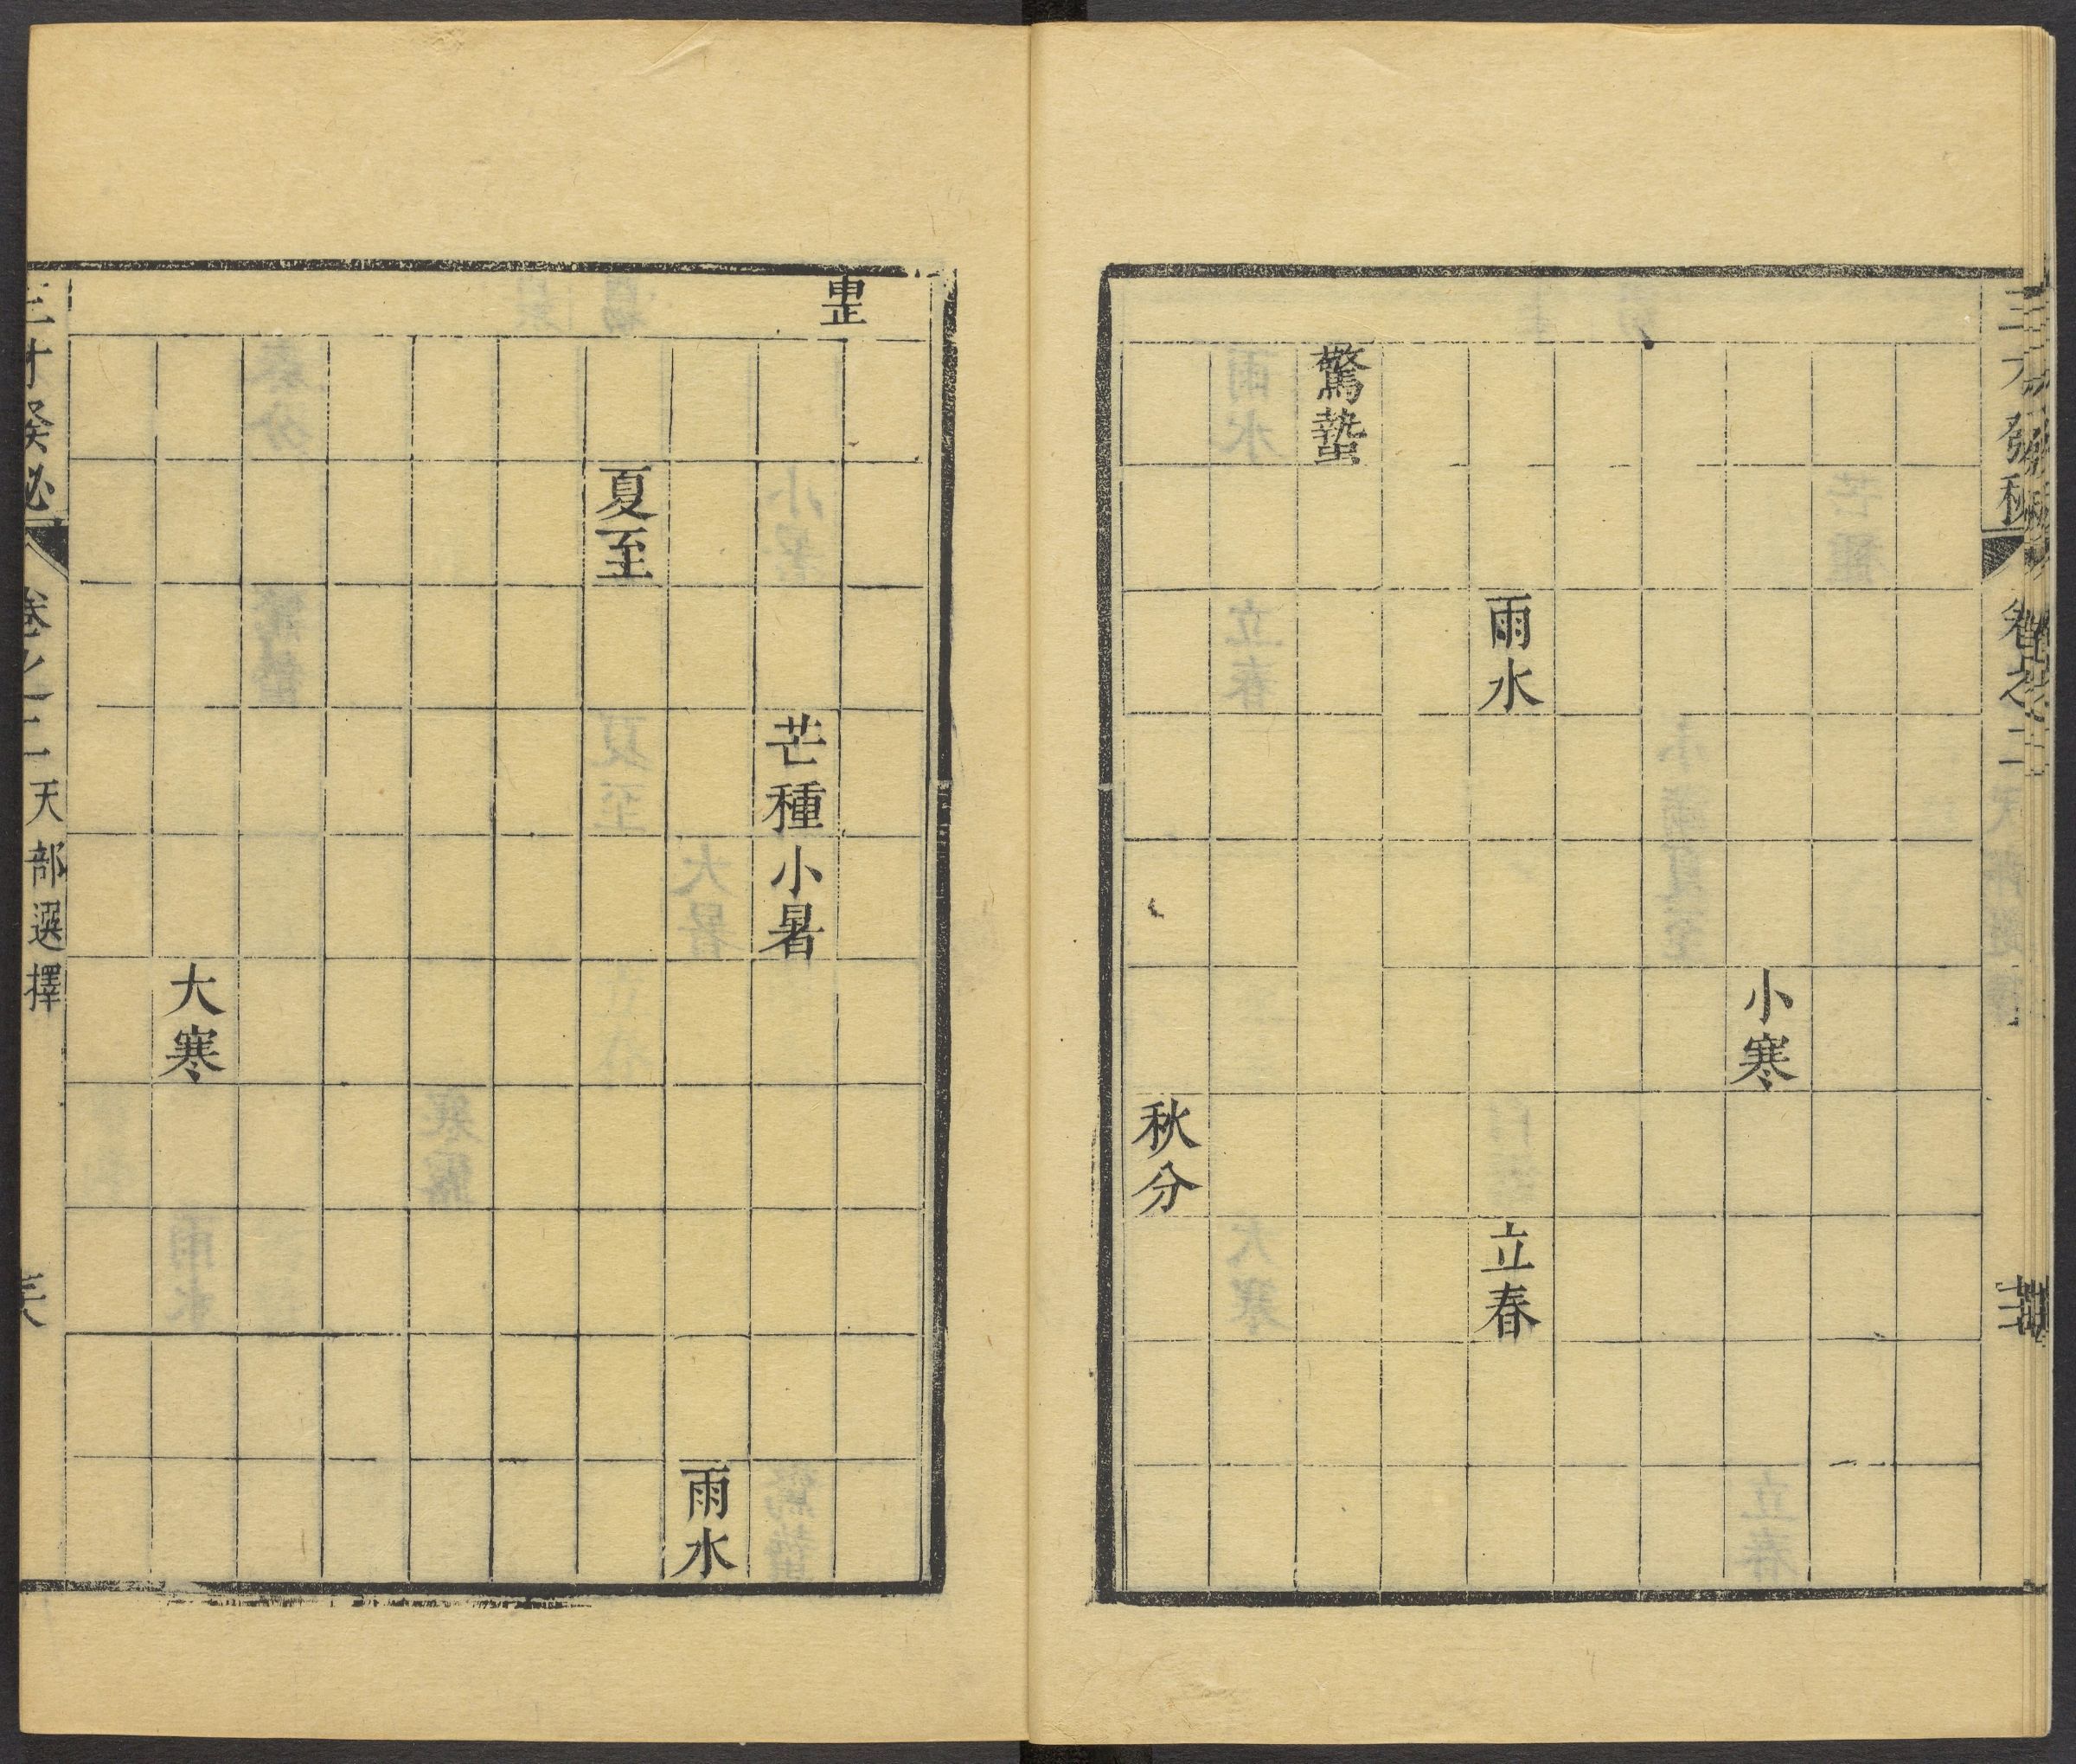 三才發秘
卷之二
小寒
雨水
立春
驚蟄
秋分
芒種
小暑
雨水
夏至
大寒
三才發秘
卷之二 天部選擇